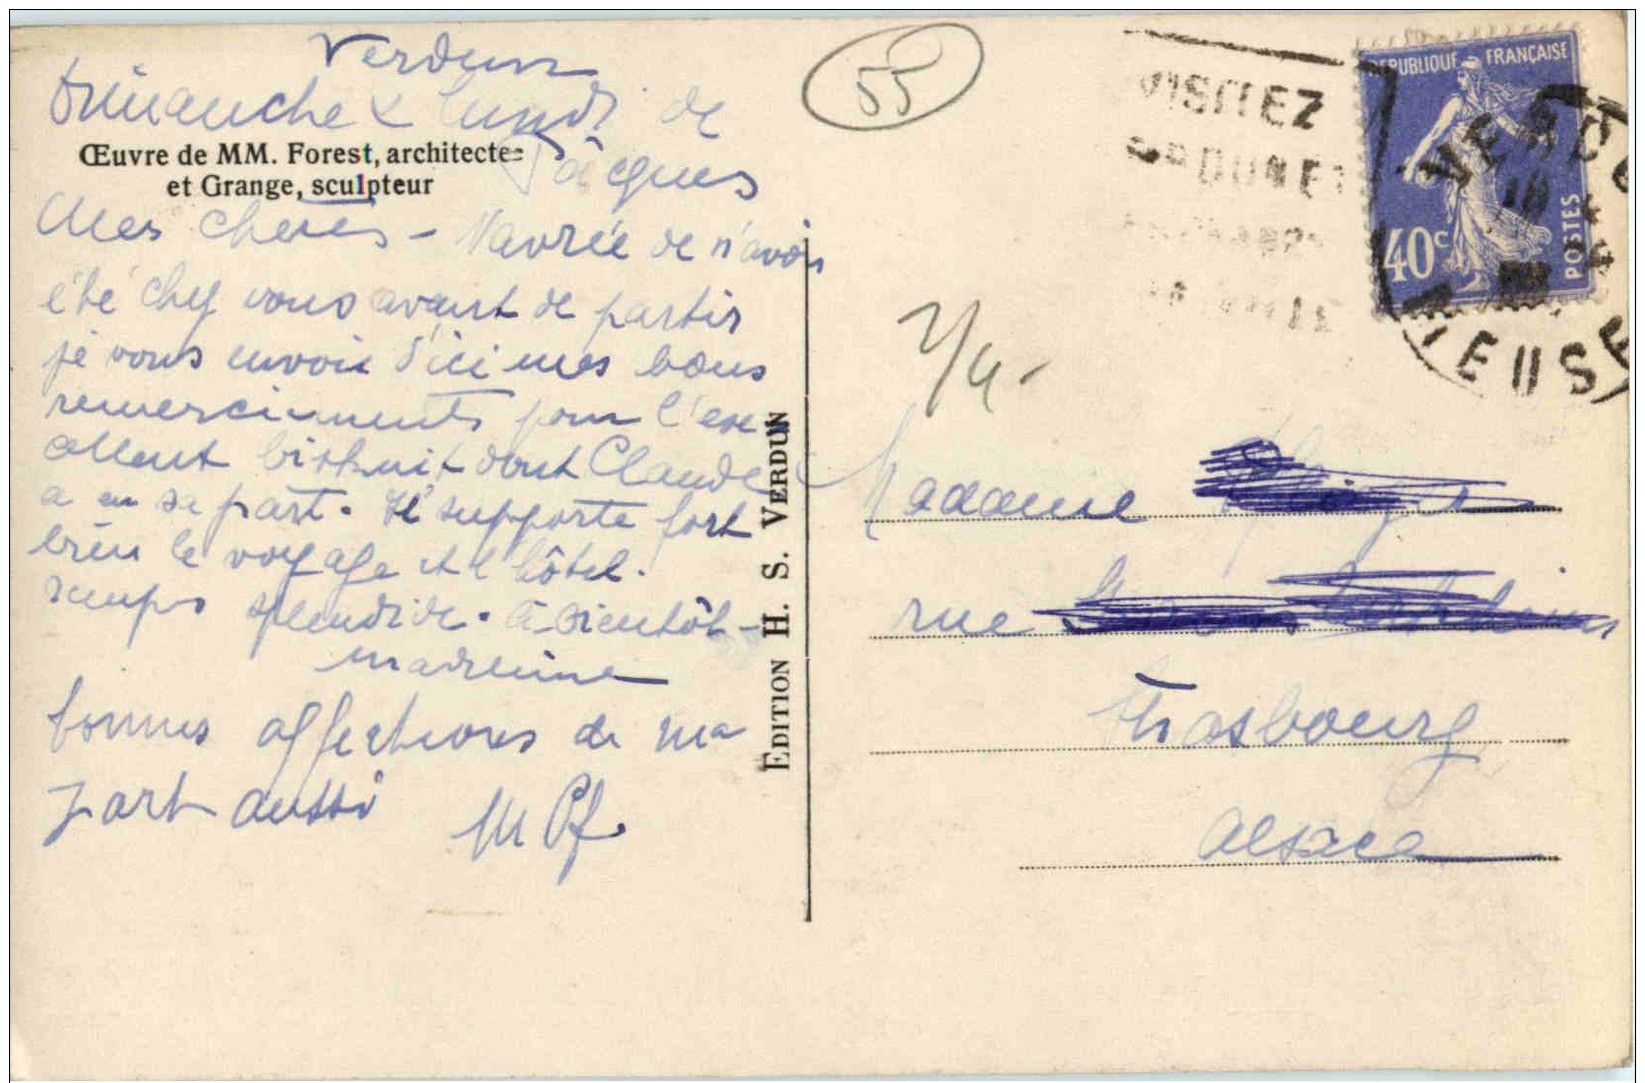 Verdun
dimanche & lundi de
Œuvre de MM. Forest, architecte
et Grange, sculpteur
Pâques
Mes chères - Navrée de n'avoir
été chez vous avant de partir
je vous envoie d'ici mes bons
remerciements pour l'exe-
cellent biskuit dont Claude
a eu sa part. Il supporte fort
bien le voyage et l'hôtel.
Temps splendide. à bientôt -
Madeleine
bonnes affections de ma
part aussi
M Pf.
EDITION H. S. VERDUN
55
VISITEZ
REPUBLIQUE FRANÇAISE
40c
POSTES
VERDUN
MEUSE
Madame
rue
Strasbourg
Alsace